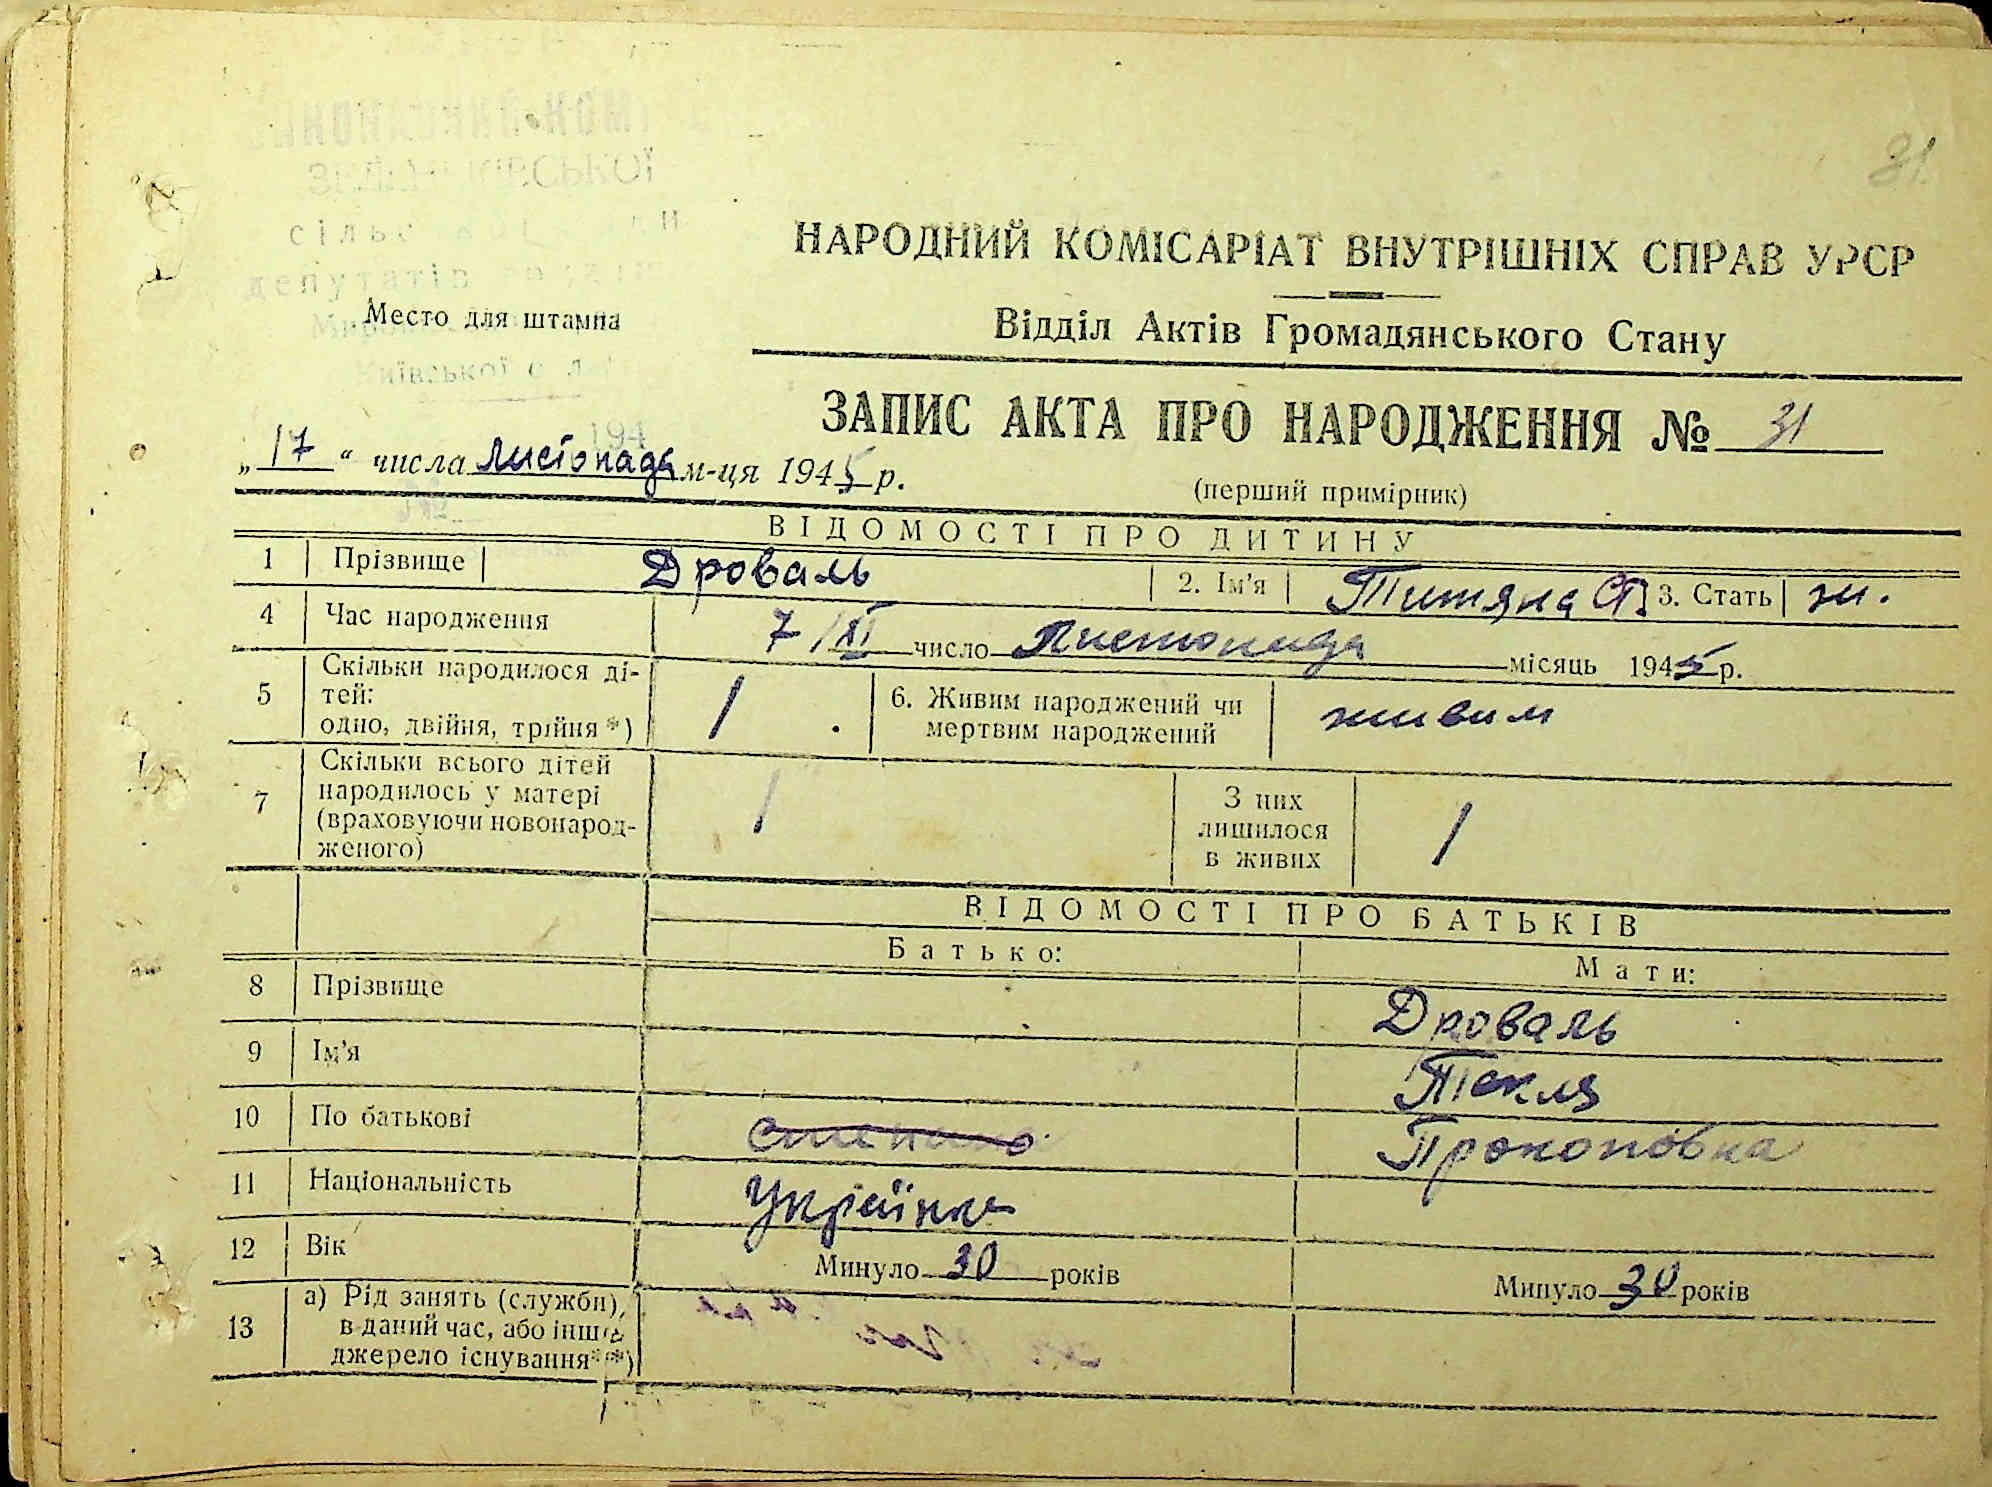 31
ЗЕЛЕНЬКІВСЬКОЇ
депутатів
Київської
194
№
НАРОДНИЙ КОМІСАРІАТ ВНУТРІШНІХ СПРАВ УРСР
Место для штампа
Відділ Актів Громадянського Стану
ЗАПИС АКТА ПРО НАРОДЖЕННЯ № 31
„17“ числа листопада м-ця 1945 р.
(перший примірник)
ВІДОМОСТІ ПРО ДИТИНУ
1 Прізвище Дроваль 2. Ім'я Титяна С. 3. Стать ж.
4 Час народження 7/XI число Листопада місяць 1945 р.
5 Скільки народилося ді-
тей:
одно, двійня, трійня*) 1
6. Живим народжений чи
мертвим народжений живим
7 Скільки всього дітей
народилось у матері
(враховуючи новонарод-
женого) 1
З них
лишилося
в живих 1
ВІДОМОСТІ ПРО БАТЬКІВ
Батько: Мати:
8 Прізвище Дроваль
9 Ім'я Текля
10 По батькові Прокоповна
11 Національність Українка
12 Вік Минуло 30 років Минуло 30 років
13 а) Рід занять (служби),
в даний час, або інше
джерело існування**)